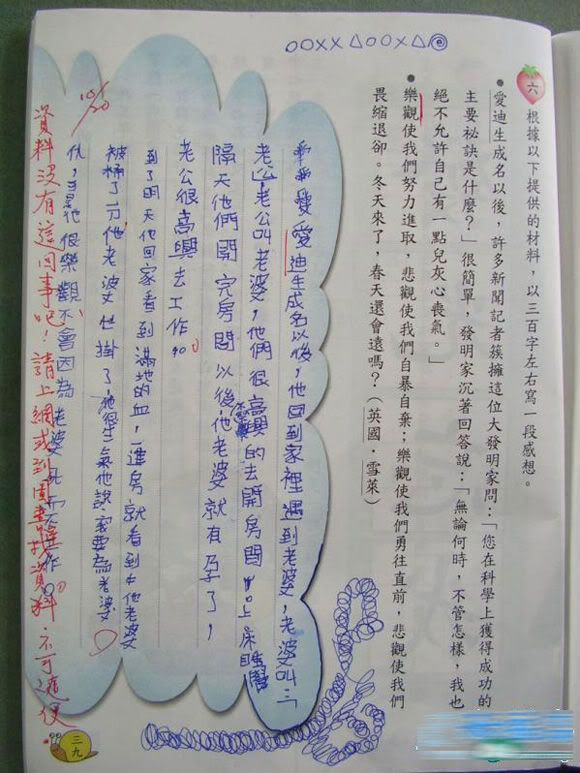 ○○××△○○×△
六 根據以下提供的材料，以三百字左右寫一段感想。
● 愛迪生成名以後，許多新聞記者簇擁這位大發明家問：「您在科學上獲得成功的
主要祕訣是什麼？」很簡單，發明家沉著回答說：「無論何時，不管怎樣，我也
絕不允許自己有一點兒灰心喪氣。」
● 樂觀使我們努力進取，悲觀使我們自暴自棄；樂觀使我們勇往直前，悲觀使我們
畏縮退卻。冬天來了，春天還會遠嗎？（英國．雪萊）
愛迪生成名以後，他回到家裡遇到老婆，老婆叫
老公老公叫老婆，他們很高興的去開房間上床睡覺
隔天他們開完房間以後他老婆就有孕了，
老公很高興去工作
到了明天他回家看到滿地的血，一進房就看到他老婆
被桶了一刀他老婆也掛了，他很生氣他說家要為老婆
仇，他很樂觀不會因為老婆死而不工作
10/20
資料沒有這回事吧！請上網或到圖書找資料 不可隨便．
三九